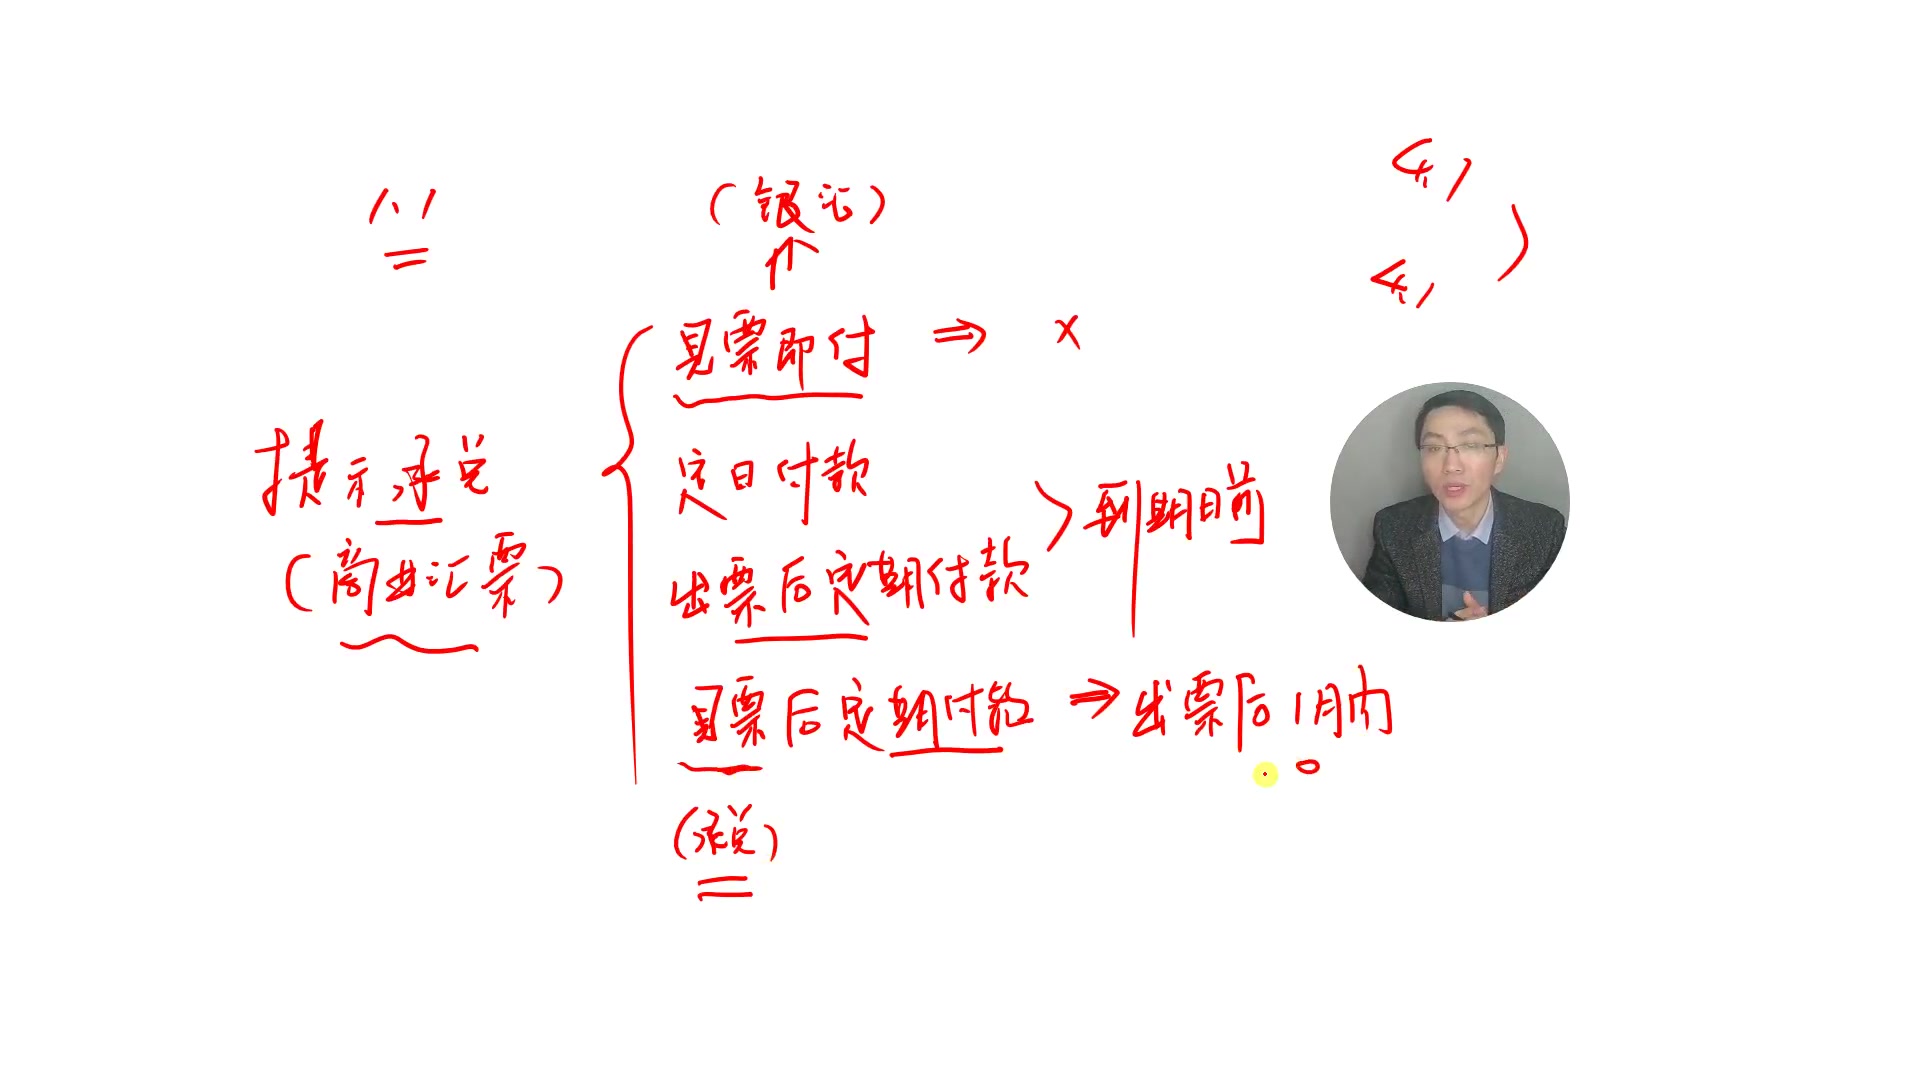 4.1
1.1
(银汇)
4.1
见票即付 ⇒ ×
提示承兑
定日付款
到期日前
(商业汇票)
出票后定期付款
见票后定期付款 ⇒ 出票后1月内
(承兑)